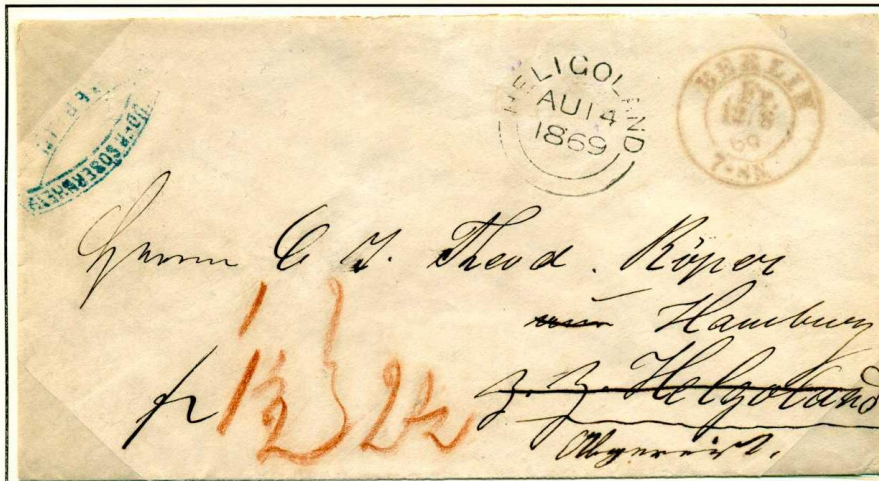 HELIGOLAND
AU 14
1869
BERLIN
69
7-8N
SOBERNHEIM
Herrn C J. Theod. Röper
aus Hamburg
z. Z. Helgoland
Abgereist.
fr 1
1½ } 2½